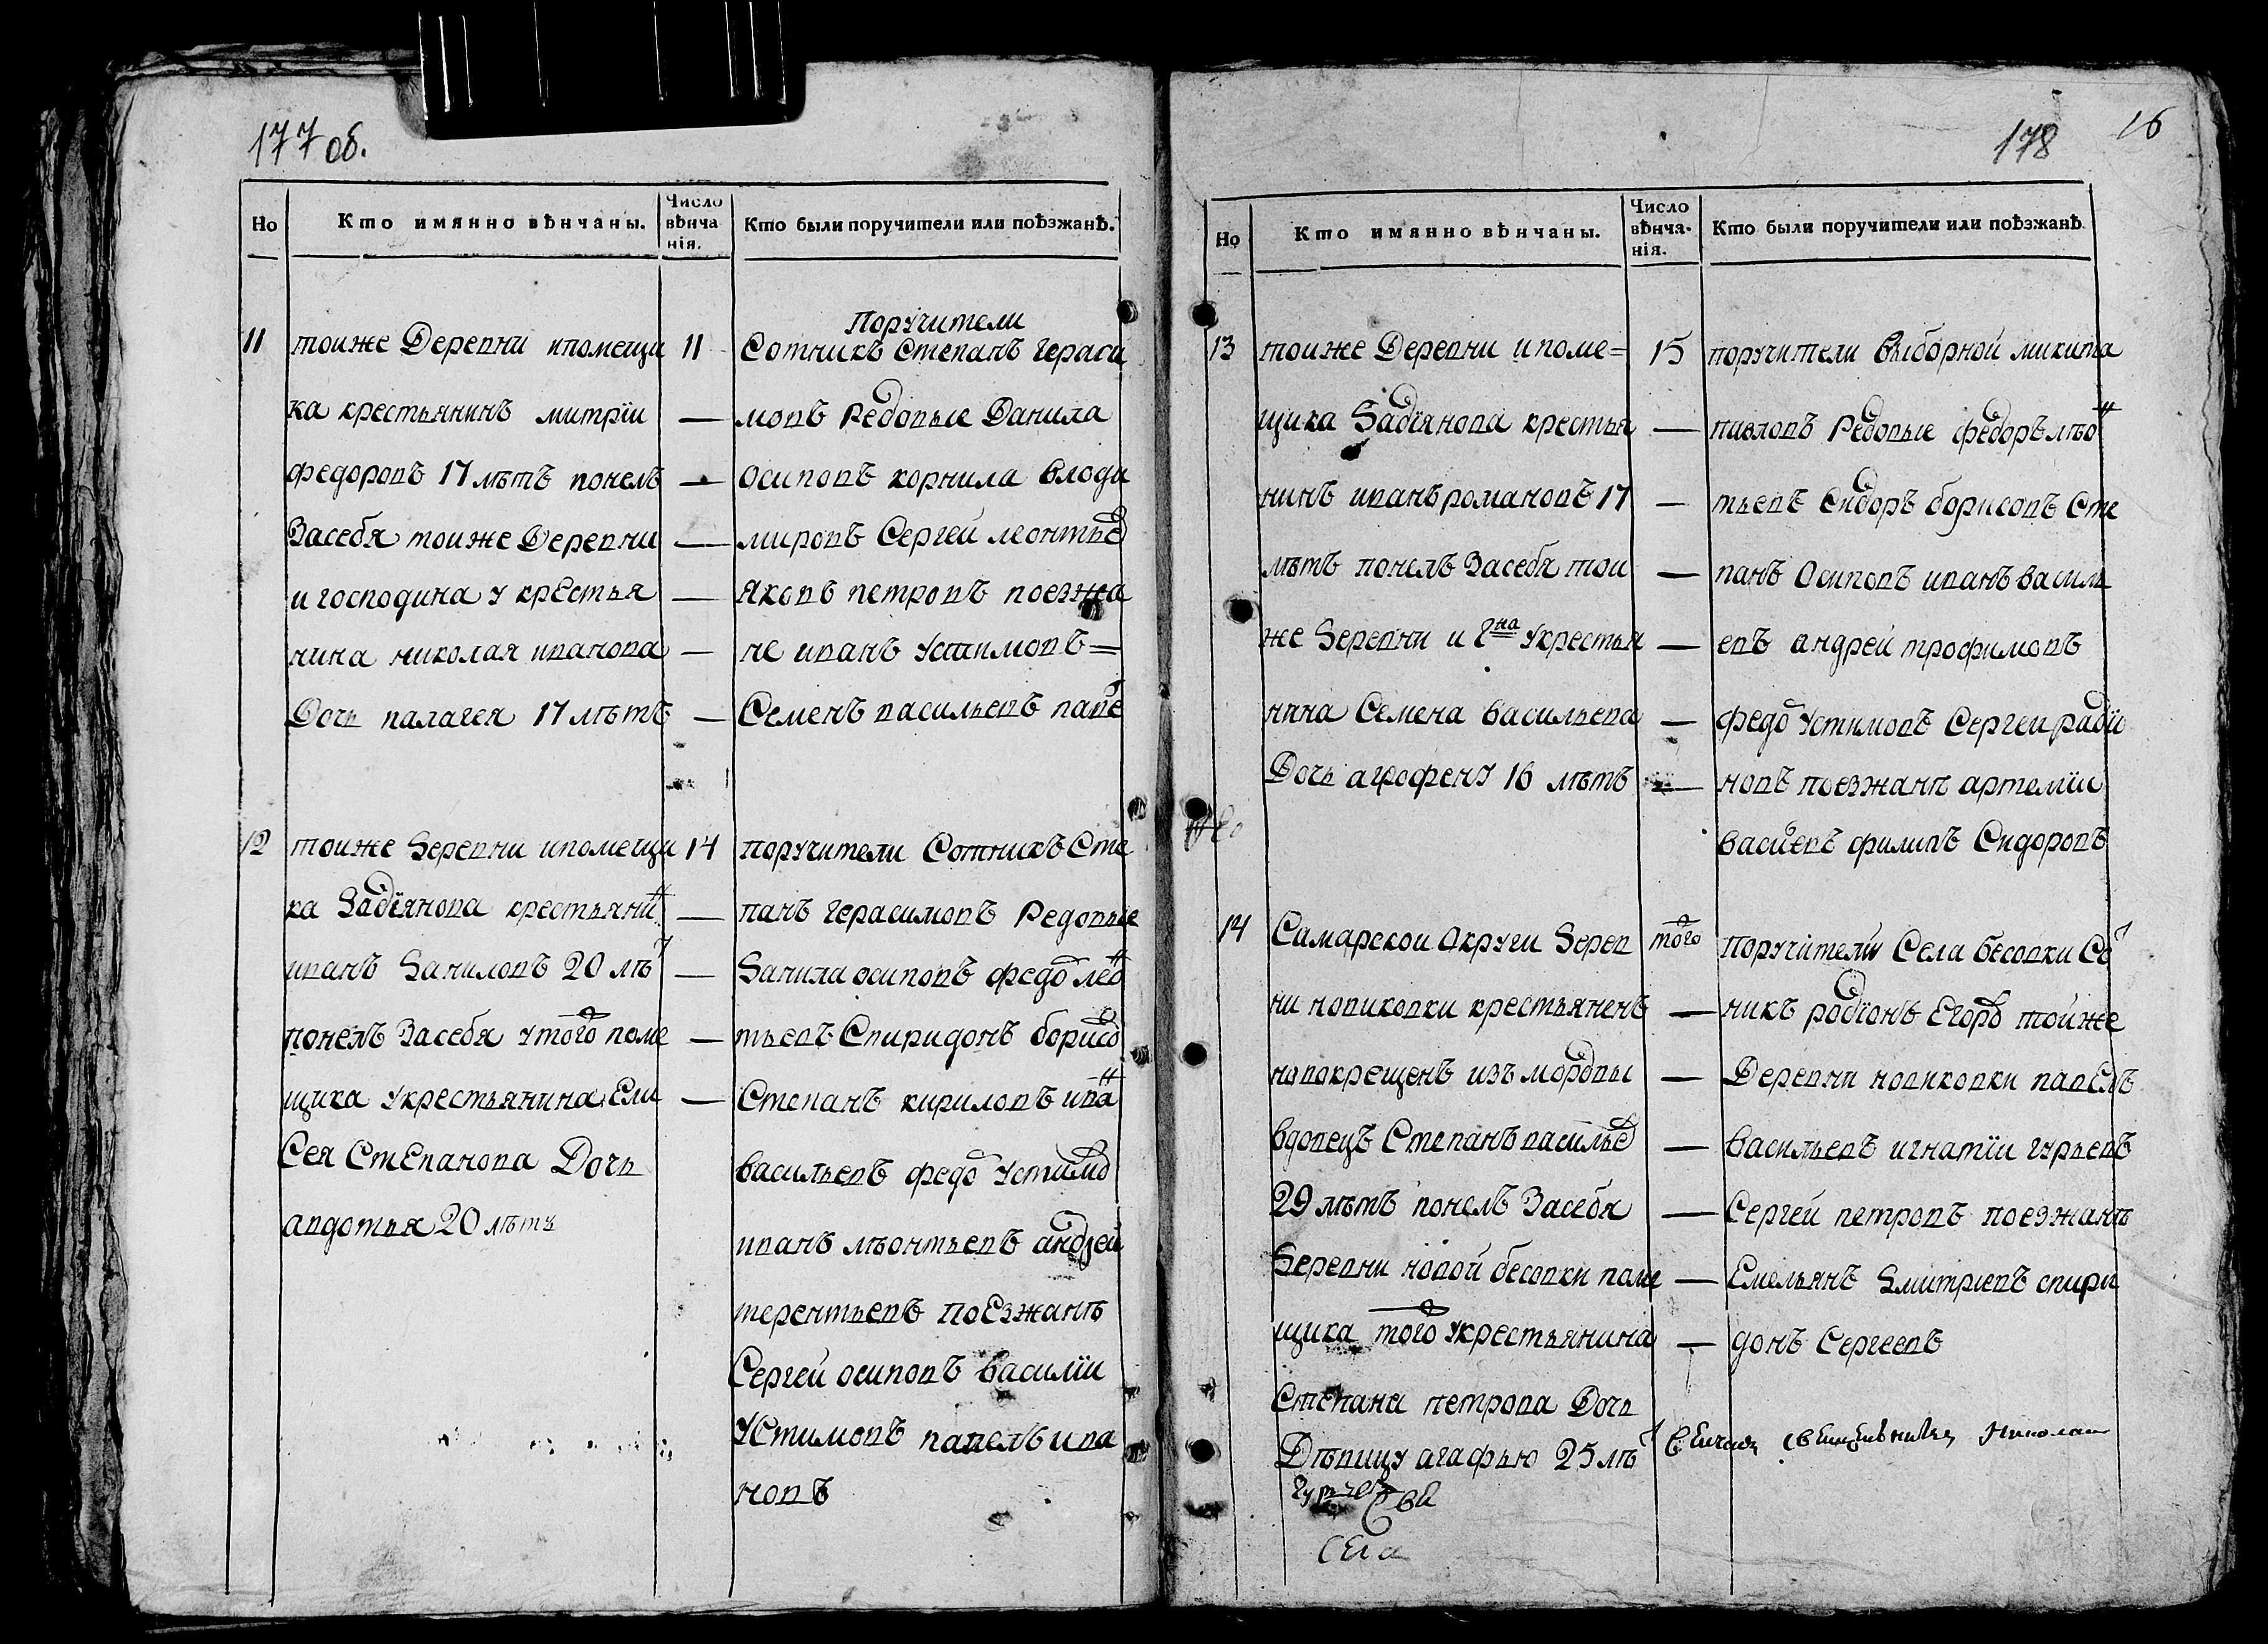 177 об.
Но
Кто имянно вѣнчаны.
Число вѣнчанія.
Кто были поручители или поѣзжанѣ.
11
тоиже Деревни ипомещи
ка крестьянинъ митрїи
федоровъ 17 лѣтъ понелъ
Засебя тоиже Деревни
и господина у крестья
нина николая иванова
Дочь палагея 17 лѣтъ
11
Поручители
Сотникъ Степанъ гераси
мовъ Редовые Данила
осиповъ корнила влоди
мировъ Сергей леонтье
Яковъ петровъ поезжа
не иванъ Устимовъ=
Семенъ васильевъ паве
12
тоиже Деревни ипомещи
ка Задїянова крестьяни
иванъ Даниловъ 20 лѣт
понелъ Засебя у того поме
щика Укрестьянина Ели
Сея Степанова Дочь
авдотья 20 лѣтъ
14
поручители Сотникъ Сте
панъ герасимовъ Редовые
Данила осиповъ федо лео
тьевъ Спиридонъ борисо
Степанъ кириловъ ива
васильевъ федо Устимо
иванъ лѣонтьевъ андрей
терентьевъ поезжанѣ
Сергей осиповъ василїи
Устимовъ павелъ ива
новъ
178
16
Но
Кто имянно вѣнчаны.
Число вѣнчанія.
Кто были поручители или поѣзжанѣ.
13
тоиже Деревни ипоме=
щика Задїянова крестья
нинъ иванъ романовъ 17
лѣтъ понелъ Засебя тои
же Деревни и Гна Укрестья
нина Семена васильева
Дочь агрофену 16 лѣтъ
15
поручители выборной микита
павловъ Редовые федоръ лѣо
тьевъ Сидоръ борисовъ Сте
панъ Осиповъ иванъ василь
евъ андреи трофимовъ
федо Устимовъ Сергеи радїо
новъ поезжанѣ артемїи
васильевъ филипъ Сидоровъ
14
Самарскои Округи Дерев
ни новиковки крестьяненъ
новокрещенъ изъ мордвы
вдовецъ Степанъ василье
29 лѣтъ понелъ Засебя
Деревни новой бесовки поме
щика того Укрестьянина
Степана петрова Дочь
Дѣвицу агафью 25 лѣт
того
Поручители Села бесовки Со
никъ родїонъ Егоро тойже
Деревни новиковки павелъ
васильевъ игнатїи гурьевъ
Сергей петровъ поезжанѣ
Емельянъ Дмитриевъ спири
донъ Сергеевъ
венчалъ священникъ Николаи